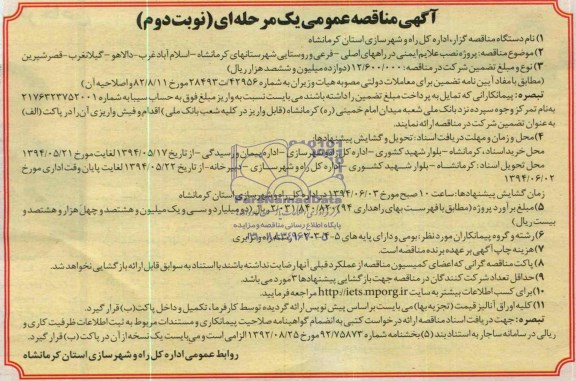 آگهی مناقصه عمومی یک مرحله ای (نوبت دوم)
۱) نام دستگاه مناقصه گزار: اداره کل راه و شهرسازی استان کرمانشاه
۲) موضوع مناقصه: پروژه نصب علایم ایمنی در راههای اصلی - فرعی و روستایی شهرستانهای کرمانشاه - اسلام آباد غرب - دالاهو - گیلانغرب - قصر شیرین
۳) نوع و مبلغ تضمین شرکت در مناقصه: ۱۲/۶۰۰/۰۰۰ (دوازده میلیون و ششصد هزار ریال)
(مطابق با مفاد آیین نامه تضمین برای معاملات دولتی مصوبه هیات وزیران به شماره ۴۲۹۵۶/ت۲۸۴۹۳ مورخ ۸۲/۸/۱۱ و اصلاحیه آن)
تبصره: پیمانکارانی که تمایل به پرداخت مبلغ تضمین را داشته باشند می بایست نسبت به واریز مبلغ فوق به حساب سیبا به شماره ۲۱۷۶۴۳۲۷۵۲۰۰۱
به نام تمرکز وجوه سپرده نزد بانک ملی شعبه میدان امام خمینی (ره) کرمانشاه (قابل واریز در کلیه شعب بانک ملی) اقدام و فیش واریزی آن را در پاکت (الف)
به عنوان تضمین شرکت در مناقصه ارائه نمایند.
۴) محل و زمان و مهلت دریافت اسناد، تحویل و گشایش پیشنهادها:
محل خرید اسناد: کرمانشاه - بلوار شهید کشوری - اداره کل راه و شهرسازی - اداره پیمان و رسیدگی - از تاریخ ۱۳۹۴/۰۵/۱۷ لغایت مورخ ۱۳۹۴/۰۵/۲۱
محل تحویل اسناد: کرمانشاه - بلوار شهید کشوری - اداره کل راه و شهرسازی - دبیرخانه - از تاریخ ۱۳۹۴/۰۵/۲۲ لغایت پایان وقت اداری مورخ
۱۳۹۴/۰۶/۰۲
زمان گشایش پیشنهادها: ساعت ۱۰ صبح مورخ ۱۳۹۴/۰۶/۰۳ در اداره کل راه و شهرسازی استان کرمانشاه
۵) مبلغ برآورد پروژه (مطابق با فهرست بهای راهداری ۹۴) ریال (دو میلیارد و سی و یک میلیون و هشتصد و چهل هزار و هشتصد و
بیست ریال)
۶) رشته و گروه پیمانکاران مورد نظر: بومی و دارای پایه های ۵ رشته راه و ترابری
۷) هزینه چاپ آگهی بر عهده برنده مناقصه است.
۸) پاکت مناقصه گرانی که اعضای کمیسیون مناقصه از عملکرد قبلی آنها رضایت نداشته باشند با استناد به سوابق قابل ارائه بازگشایی نخواهد شد.
۹) حداقل تعداد شرکت کنندگان در مناقصه جهت بازگشایی پیشنهادها ۳ مورد می باشد.
۱۰) برای کسب اطلاعات بیشتر به سایت http://iets.mporg.ir مراجعه فرمایید.
۱۱) کلیه اوراق آنالیز قیمت (تجزیه بها) می بایست براساس پیش نویس ارائه گردیده توسط کارفرما، تکمیل و داخل پاکت (ب) قرار گیرد.
تبصره: جهت دریافت اسناد مناقصه ارائه درخواست کتبی به انضمام گواهینامه صلاحیت پیمانکاری و مستندات مربوط به ثبت اطلاعات ظرفیت کاری و
ریالی در سامانه ساجار به استناد بند (۵) بخشنامه شماره ۹۲/۷۵۸۷۳ مورخ ۱۳۹۲/۰۸/۲۵ الزامی است و می بایست یک نسخه از آن در پاکت (ب) قرار گیرد.
روابط عمومی اداره کل راه و شهرسازی استان کرمانشاه